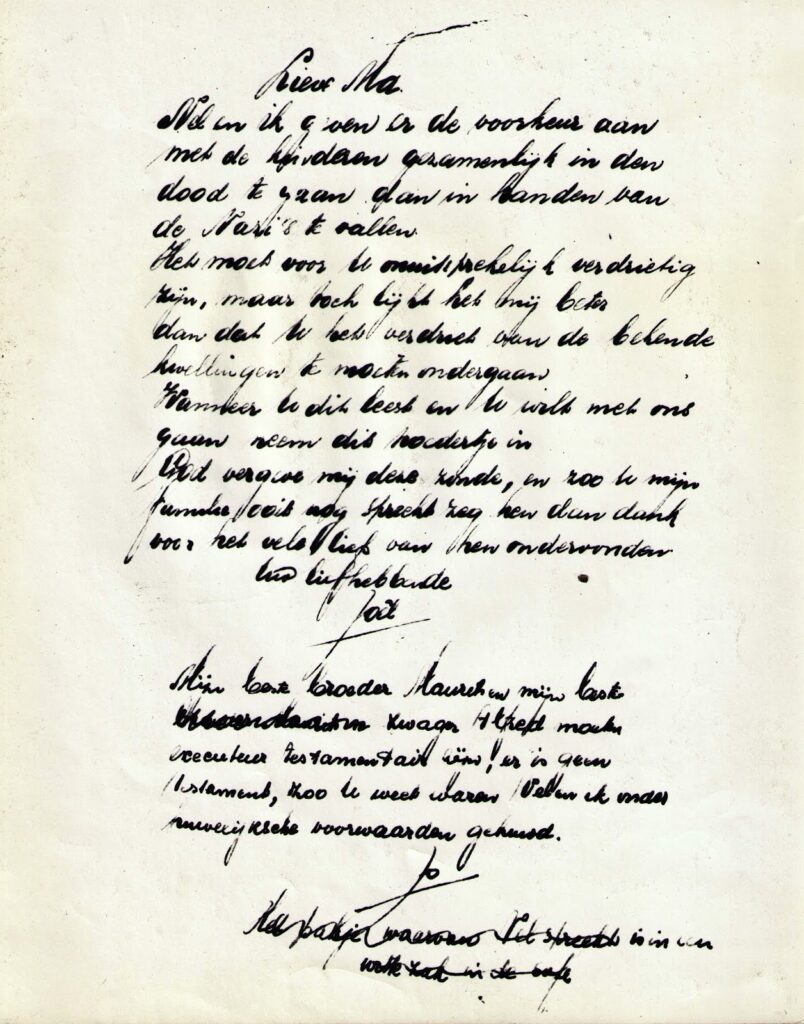 Lieve Ma.
Nel en ik geven er de voorkeur aan
met de kinderen gezamenlijk in den
dood te gaan dan in handen van
de Nazi's te vallen.
Het moet voor U onuitsprekelijk verdrietig
zijn, maar toch lijkt het mij beter
dan dat U het verdriet van de bekende
kwellingen te moeten ondergaan
Wanneer U dit leest en U wilt met ons
gaan neem dit poedertje in
God vergeve mij deze zonde, en zoo U mijn
familie ooit nog spreekt zeg hen dan dank
voor het vele lief van hen ondervonden
Uw liefhebbende
Mijn beste broeder Maurits en mijn beste
zwager Alfred moeten
executeur testamentair zijn! er is geen
testament, zoo U weet waren Nel en ik onder
huwelijksche voorwaarden gehuwd.
Jo
Het pakje waarvan Nel spreekt is in een
witte zak in de safe